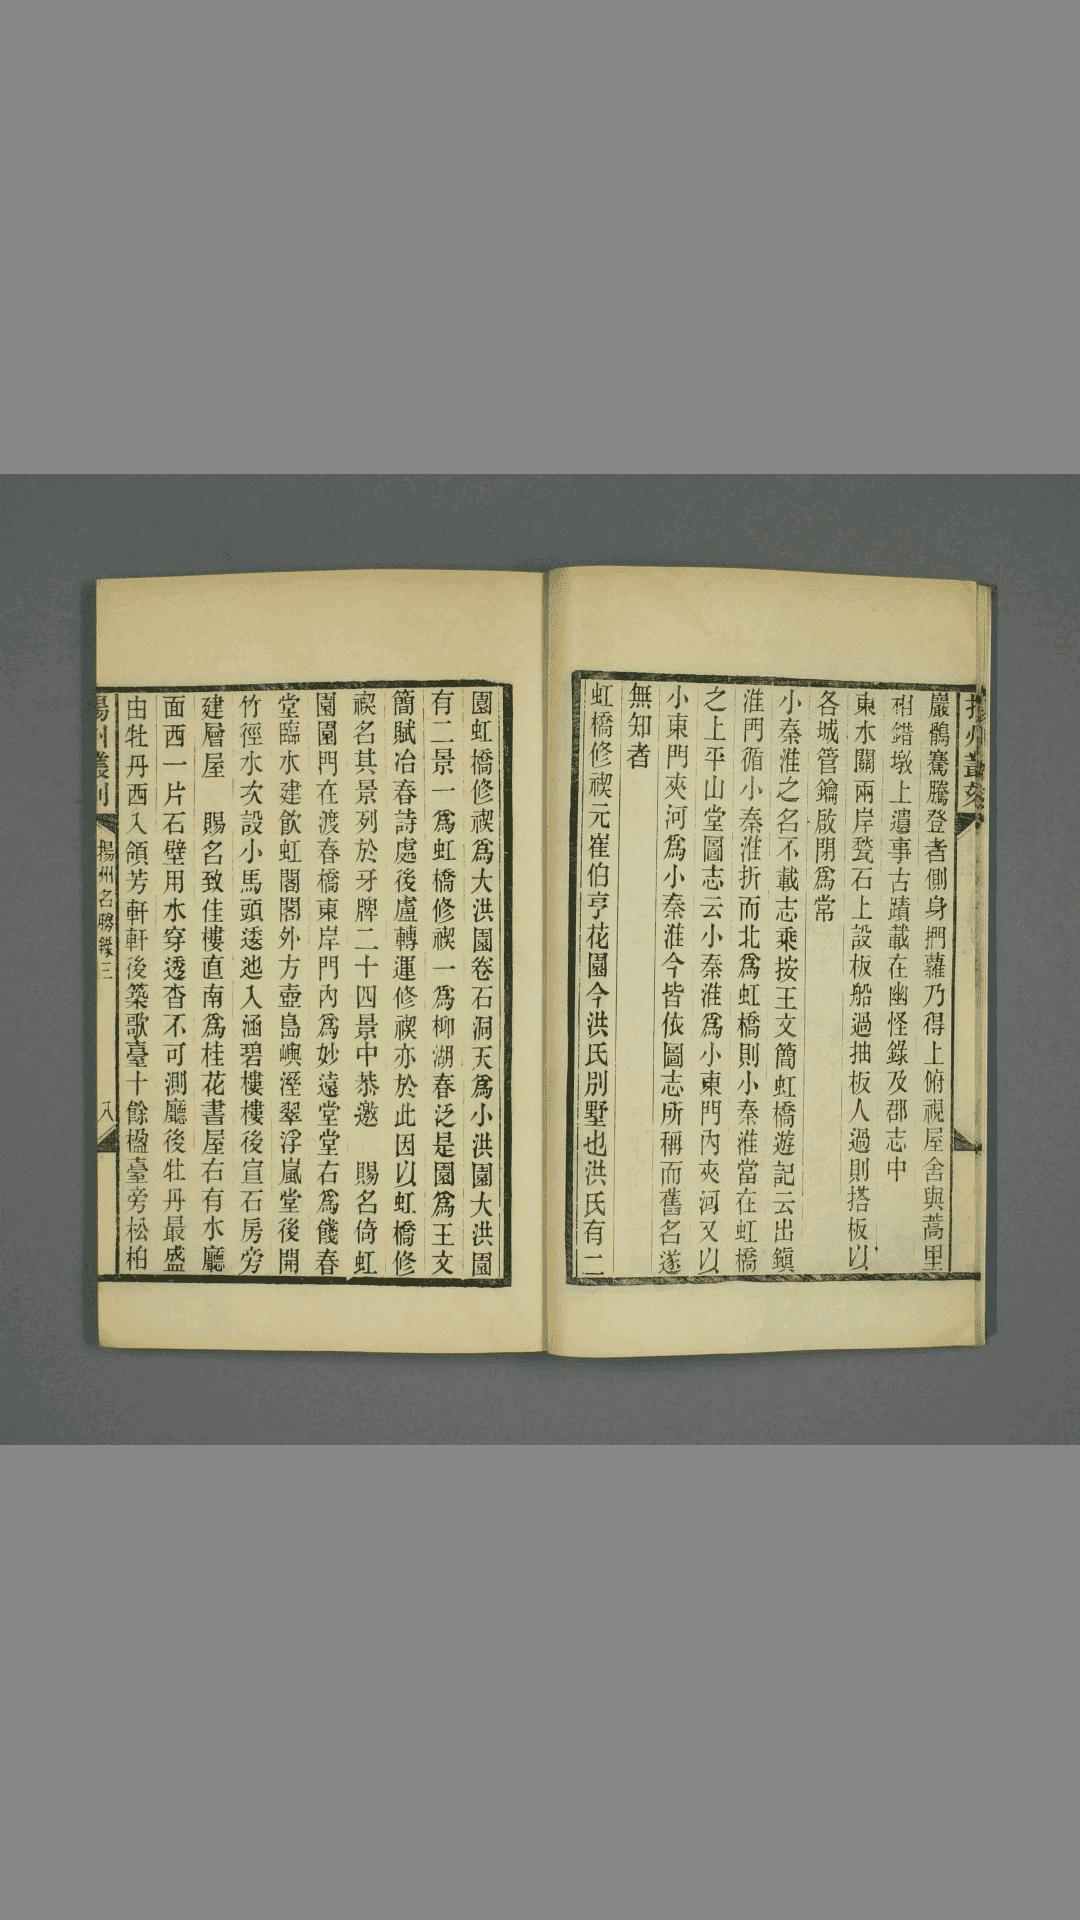 揚州叢刻
巖鶻騫騰登者側身捫蘿乃得上俯視屋舍與蒿里
相錯墩上遺事古蹟載在幽怪錄及郡志中
東水關兩岸甃石上設板船過抽板人過則搭板以
各城管鑰啟閉爲常
小秦淮之名不載志乘按王文簡虹橋遊記云出鎭
淮門循小秦淮折而北爲虹橋則小秦淮當在虹橋
之上平山堂圖志云小秦淮爲小東門內夾河又以
小東門夾河爲小秦淮今皆依圖志所稱而舊名遂
無知者
虹橋修禊元崔伯亨花園今洪氏別墅也洪氏有二
園虹橋修禊爲大洪園卷石洞天爲小洪園大洪園
有二景一爲虹橋修禊一爲柳湖春泛是園爲王文
簡賦冶春詩處後盧轉運修禊亦於此因以虹橋修
禊名其景列於牙牌二十四景中恭邀 賜名倚虹
園園門在渡春橋東岸門內爲妙遠堂堂右爲餞春
堂臨水建飲虹閣閣外方壺島嶼溼翠浮嵐堂後開
竹徑水次設小馬頭逶迤入涵碧樓樓後宣石房旁
建層屋 賜名致佳樓直南爲桂花書屋右有水廳
面西一片石壁用水穿透杳不可測廳後牡丹最盛
由牡丹西入領芳軒軒後築歌臺十餘楹臺旁松柏
揚州叢刻
揚州名勝錄三
八